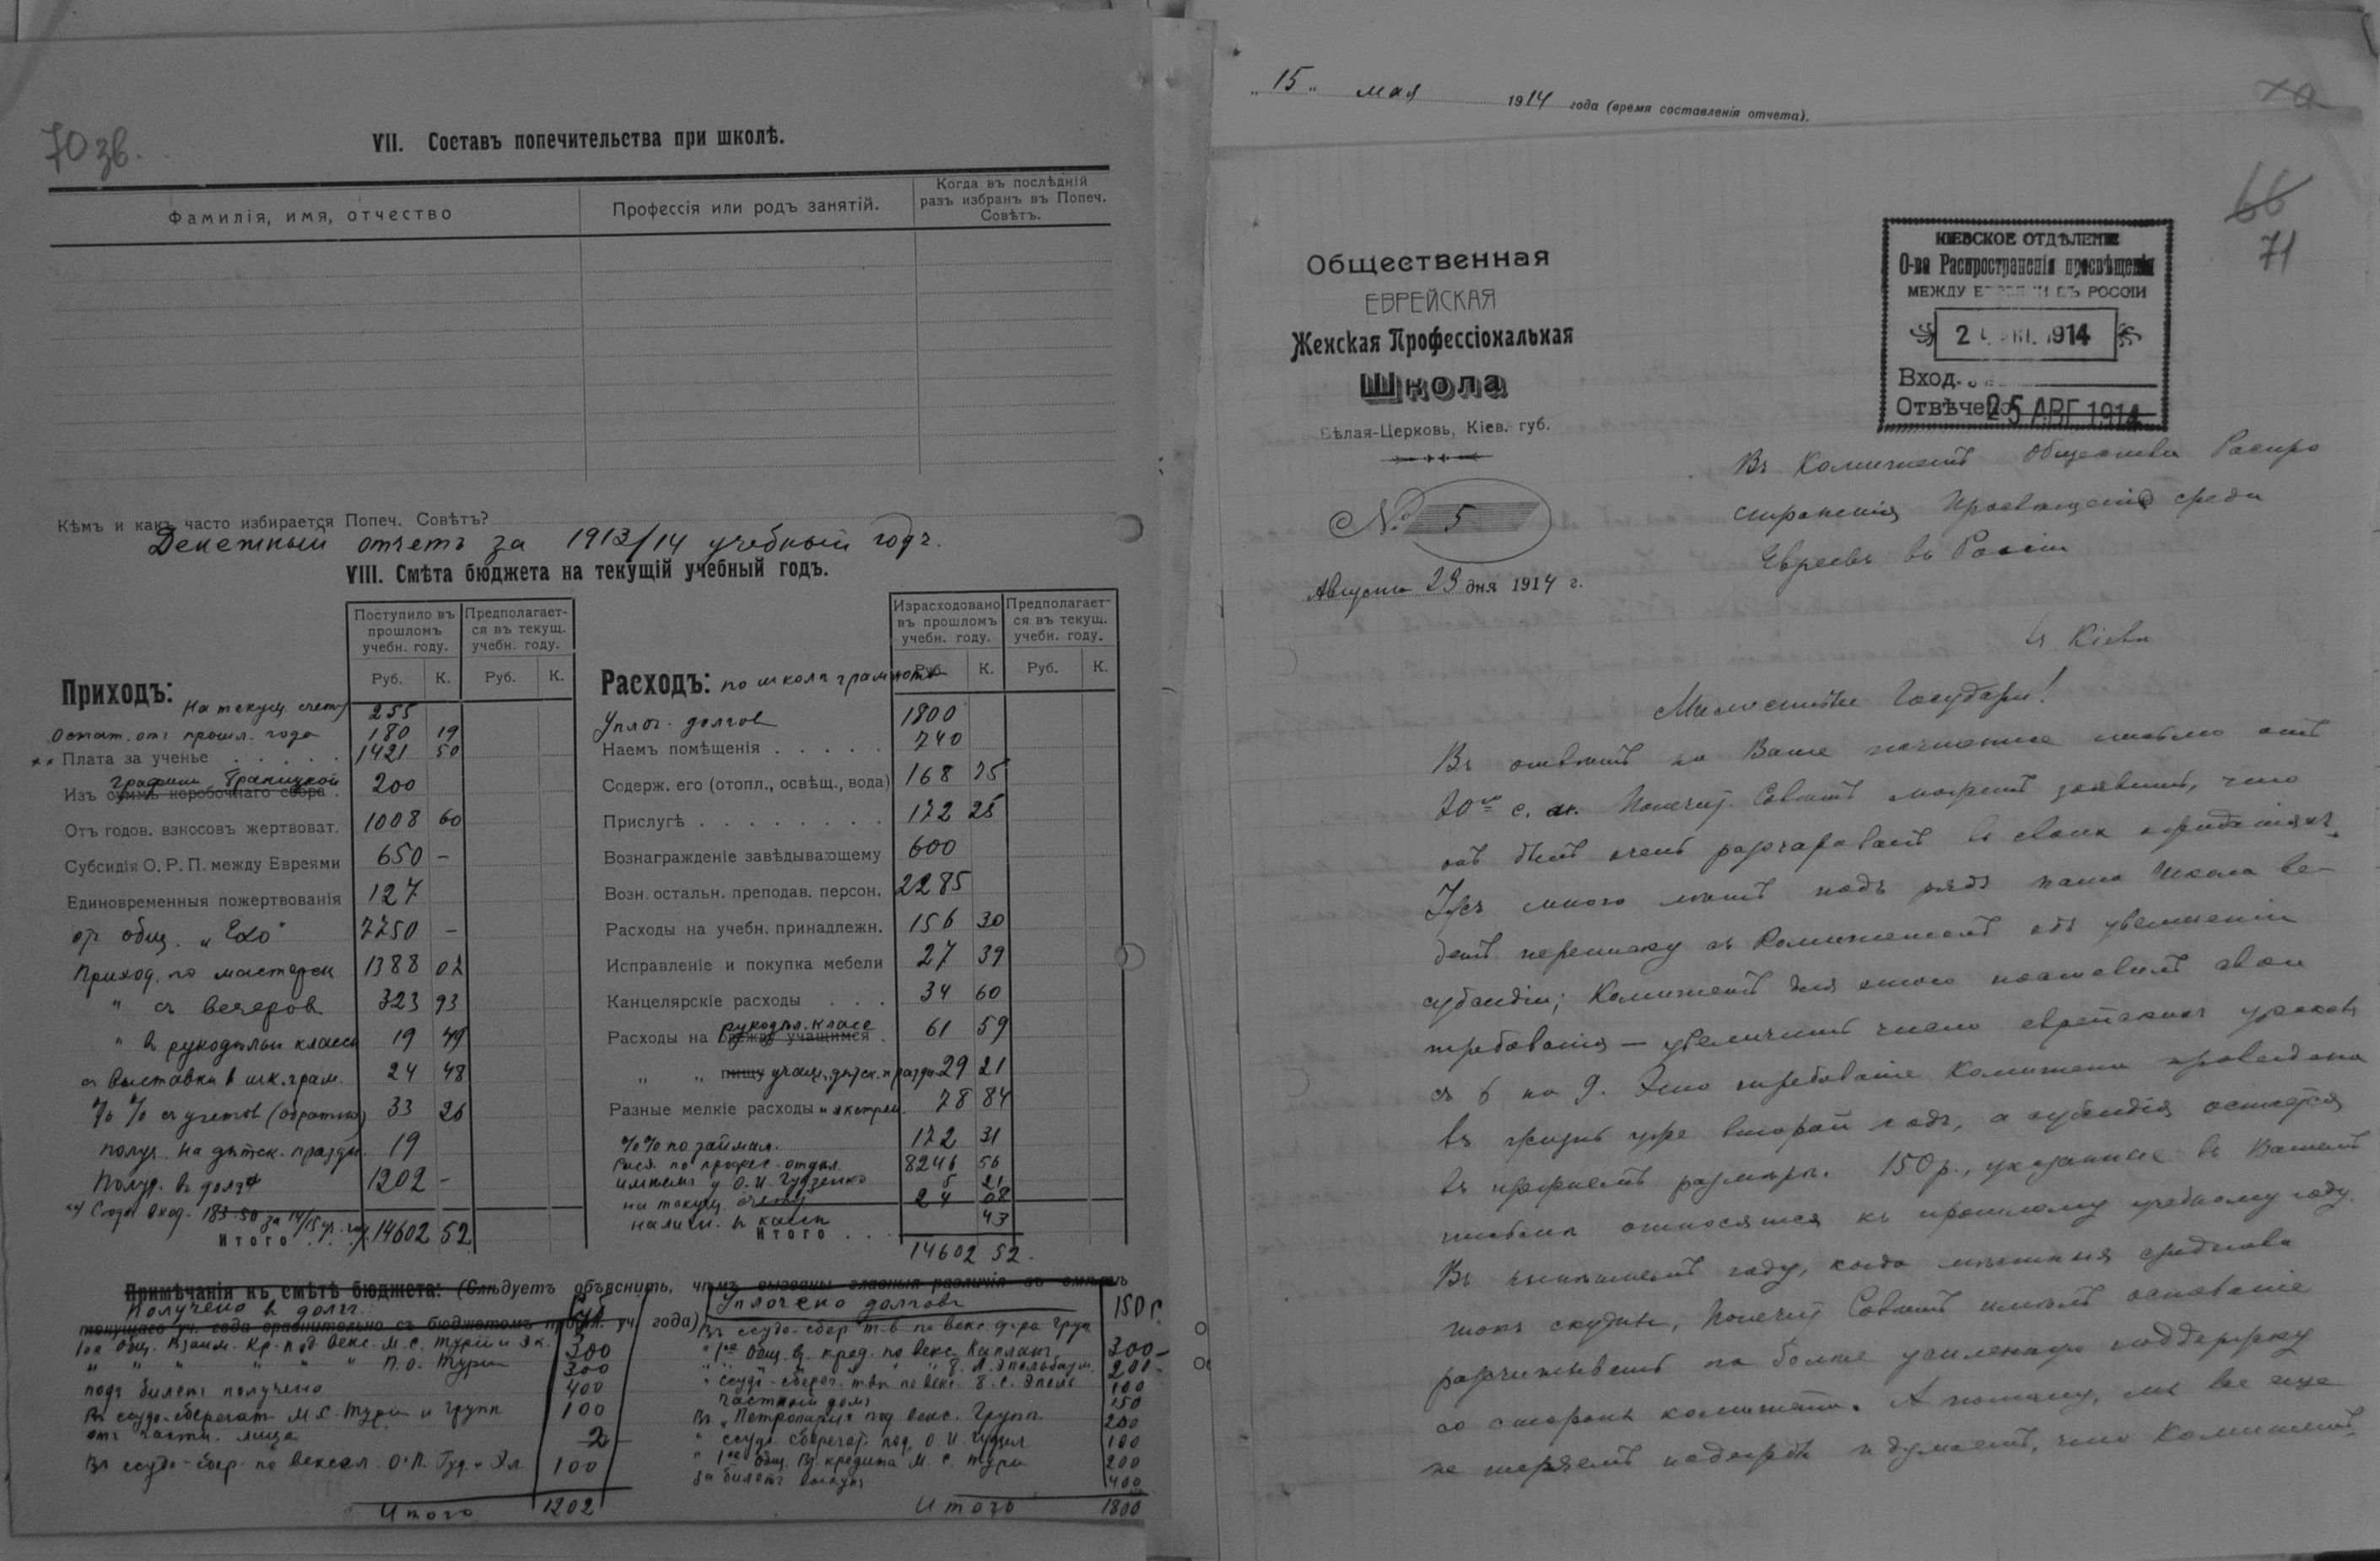 70 зв.
VII. Составъ попечительства при школѣ.
Фамилія, имя, отчество
Профессія или родъ занятій.
Когда въ послѣдній
разъ избранъ въ Попеч.
Совѣтъ.
Кѣмъ и какъ часто избирается Попеч. Совѣтъ?
Денежный отчетъ за 1913/14 учебный годъ.
VIII. Смѣта бюджета на текущій учебный годъ.
Поступило въ прошломъ учебн. году.
Предполагает-ся въ текущ. учебн. году.
Руб. К. Руб. К.
Приходъ:
На текущ. счету 255
Остат. отъ прошл. года 180 19
** Плата за ученье 1421 50
Изъ суммъ коробочнаго сбора графини Браницкой 200
Отъ годов. взносовъ жертвоват. 1008 60
Субсидія О. Р. П. между Евреями 650 –
Единовременныя пожертвованія 127
от общ. „Ехо" 7750 –
Приход. по мастерск 1388 02
" съ вечеров 323 93
" в рукодѣльн классъ 19 49
съ выставки в шк. грам. 24 48
% % съ учетов (обратно) 33 26
получ. на дѣтск. праздн. 19
Получ. в долгъ 1202 –
Сюда вход. 183.50 за 14/15 уч. год
Итого 14602 52
Израсходовано въ прошломъ учебн. году.
Предполагает-ся въ текущ. учебн. году.
Руб. К. Руб. К.
Расходъ: по школѣ грамоты
Уплоч. долгов 1800
Наемъ помѣщенія 740
Содерж. его (отопл., освѣщ., вода) 168 75
Прислугѣ 172 25
Вознагражденіе завѣдывающему 600
Возн. остальн. преподав. персон. 2285
Расходы на учебн. принадлежн. 156 30
Исправленіе и покупка мебели 27 39
Канцелярскіе расходы 34 60
Расходы на одежду учащимся рукодѣл. класс 61 59
„ „ пищу учащ. дѣтск. праздн. 29 21
Разные мелкіе расходы и экстрен. 78 84
%% по займам. 172 31
Расх. по профес. отдѣл. 8246 56
имѣется у О. И. Гудзенко 5 21
на текущ. счету 24 08
налич. в кассѣ 43
Итого
14602 52.
Примѣчанія къ смѣтѣ бюджета: (Слѣдуетъ объяснить, чѣмъ вызваны главныя различія въ смѣтѣ
текущаго уч. года сравнительно съ бюджетомъ прошл. уч. года)
Получено в долг:
1ое общ. Взаим. Кр. под векс. М. С. Турін и Эк. 300
" " " " " " П. О. Турін 300
подъ билетъ получено 400
Въ ссудо-сберегат М. С. Турін и Групп 100
от частн. лица 2
Въ ссудо-сбер. по вексел. О. П. Гуд. и Эл 100
Итого 1202
Уплочено долговъ
Въ ссудо-сбер. т-в по векс. д-ра Груп 150 р.
" 1ое общ. вз. кред. по векс. Каплан 300 –
200 –
" ссудо-сберег. т-вѣ по векс. 100
частный долг 150
Въ „Петропарі" под векс. Групп 200
" ссудо-сберегат. под О. И. 100
" 1ое общ. Вз. кредита М. С. Турін 200
за билетъ выкуп 400
Итого 1800
„15„ мая 1914 года (время составленія отчета).
66
71
Общественная
ЕВРЕЙСКАЯ
Женская Профессіональная
Школа
Бѣлая-Церковь, Кіев. губ.
№ 5
Августа 23 дня 1914 г.
КІЕВСКОЕ ОТДѢЛЕНІЕ
О-ва Распространенія просвѣщенія
МЕЖДУ ЕВРЕЯМИ ВЪ РОССІИ
1914
Вход.
Отвѣчено 25 АВГ 1914
Въ Комитетъ Общества Распро
страненія Просвѣщенія среди
Евреевъ въ Россіи
въ Кіевѣ
Милостивые Государи!
Въ отвѣтъ на Ваше почтенное письмо отъ
20го с. м. Попечит. Совѣтъ можетъ заявить, что
онъ былъ очень разочарованъ въ своихъ ожиданіяхъ.
Ужъ много лѣтъ подъ рядъ наша Школа ве-
детъ переписку съ Комитетомъ объ увеличеніи
субсидіи; Комитетъ для этого поставилъ свои
требованія – увеличить число еврейскихъ уроковъ
съ 6 на 9. Это требованіе Комитета проведено
въ жизнь уже второй годъ, а субсидія остается
въ прежнемъ размѣрѣ. 150 р., указанные въ Вашемъ
письмѣ относятся къ прошлому учебному году.
Въ нынѣшнемъ году, когда мѣстныя средства
такъ скудны, Попечит Совѣтъ имѣлъ основаніе
расчитывать на болѣе усиленную поддержку
со стороны комитета. А потому, мы все еще
не теряемъ надежды и думаемъ, что Комитетъ